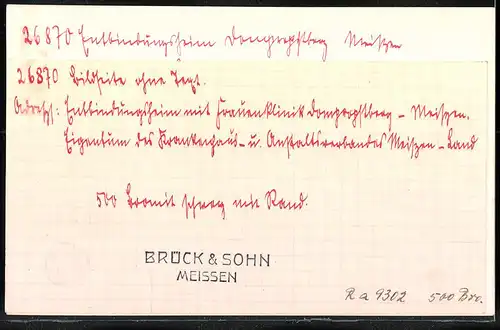 26870 Entbindungsheim Dompropstberg Meißen
26870 Bildseite ohne Text.
Adress: Entbindungsheim mit Frauenklinik Dompropstberg – Meißen.
Eigentum des Krankenhaus- u. Anstaltsverbandes Meißen – Land
500 Bromit schwarz mit Rand.
BRÜCK & SOHN
MEISSEN
R a 9302 500 Bro.